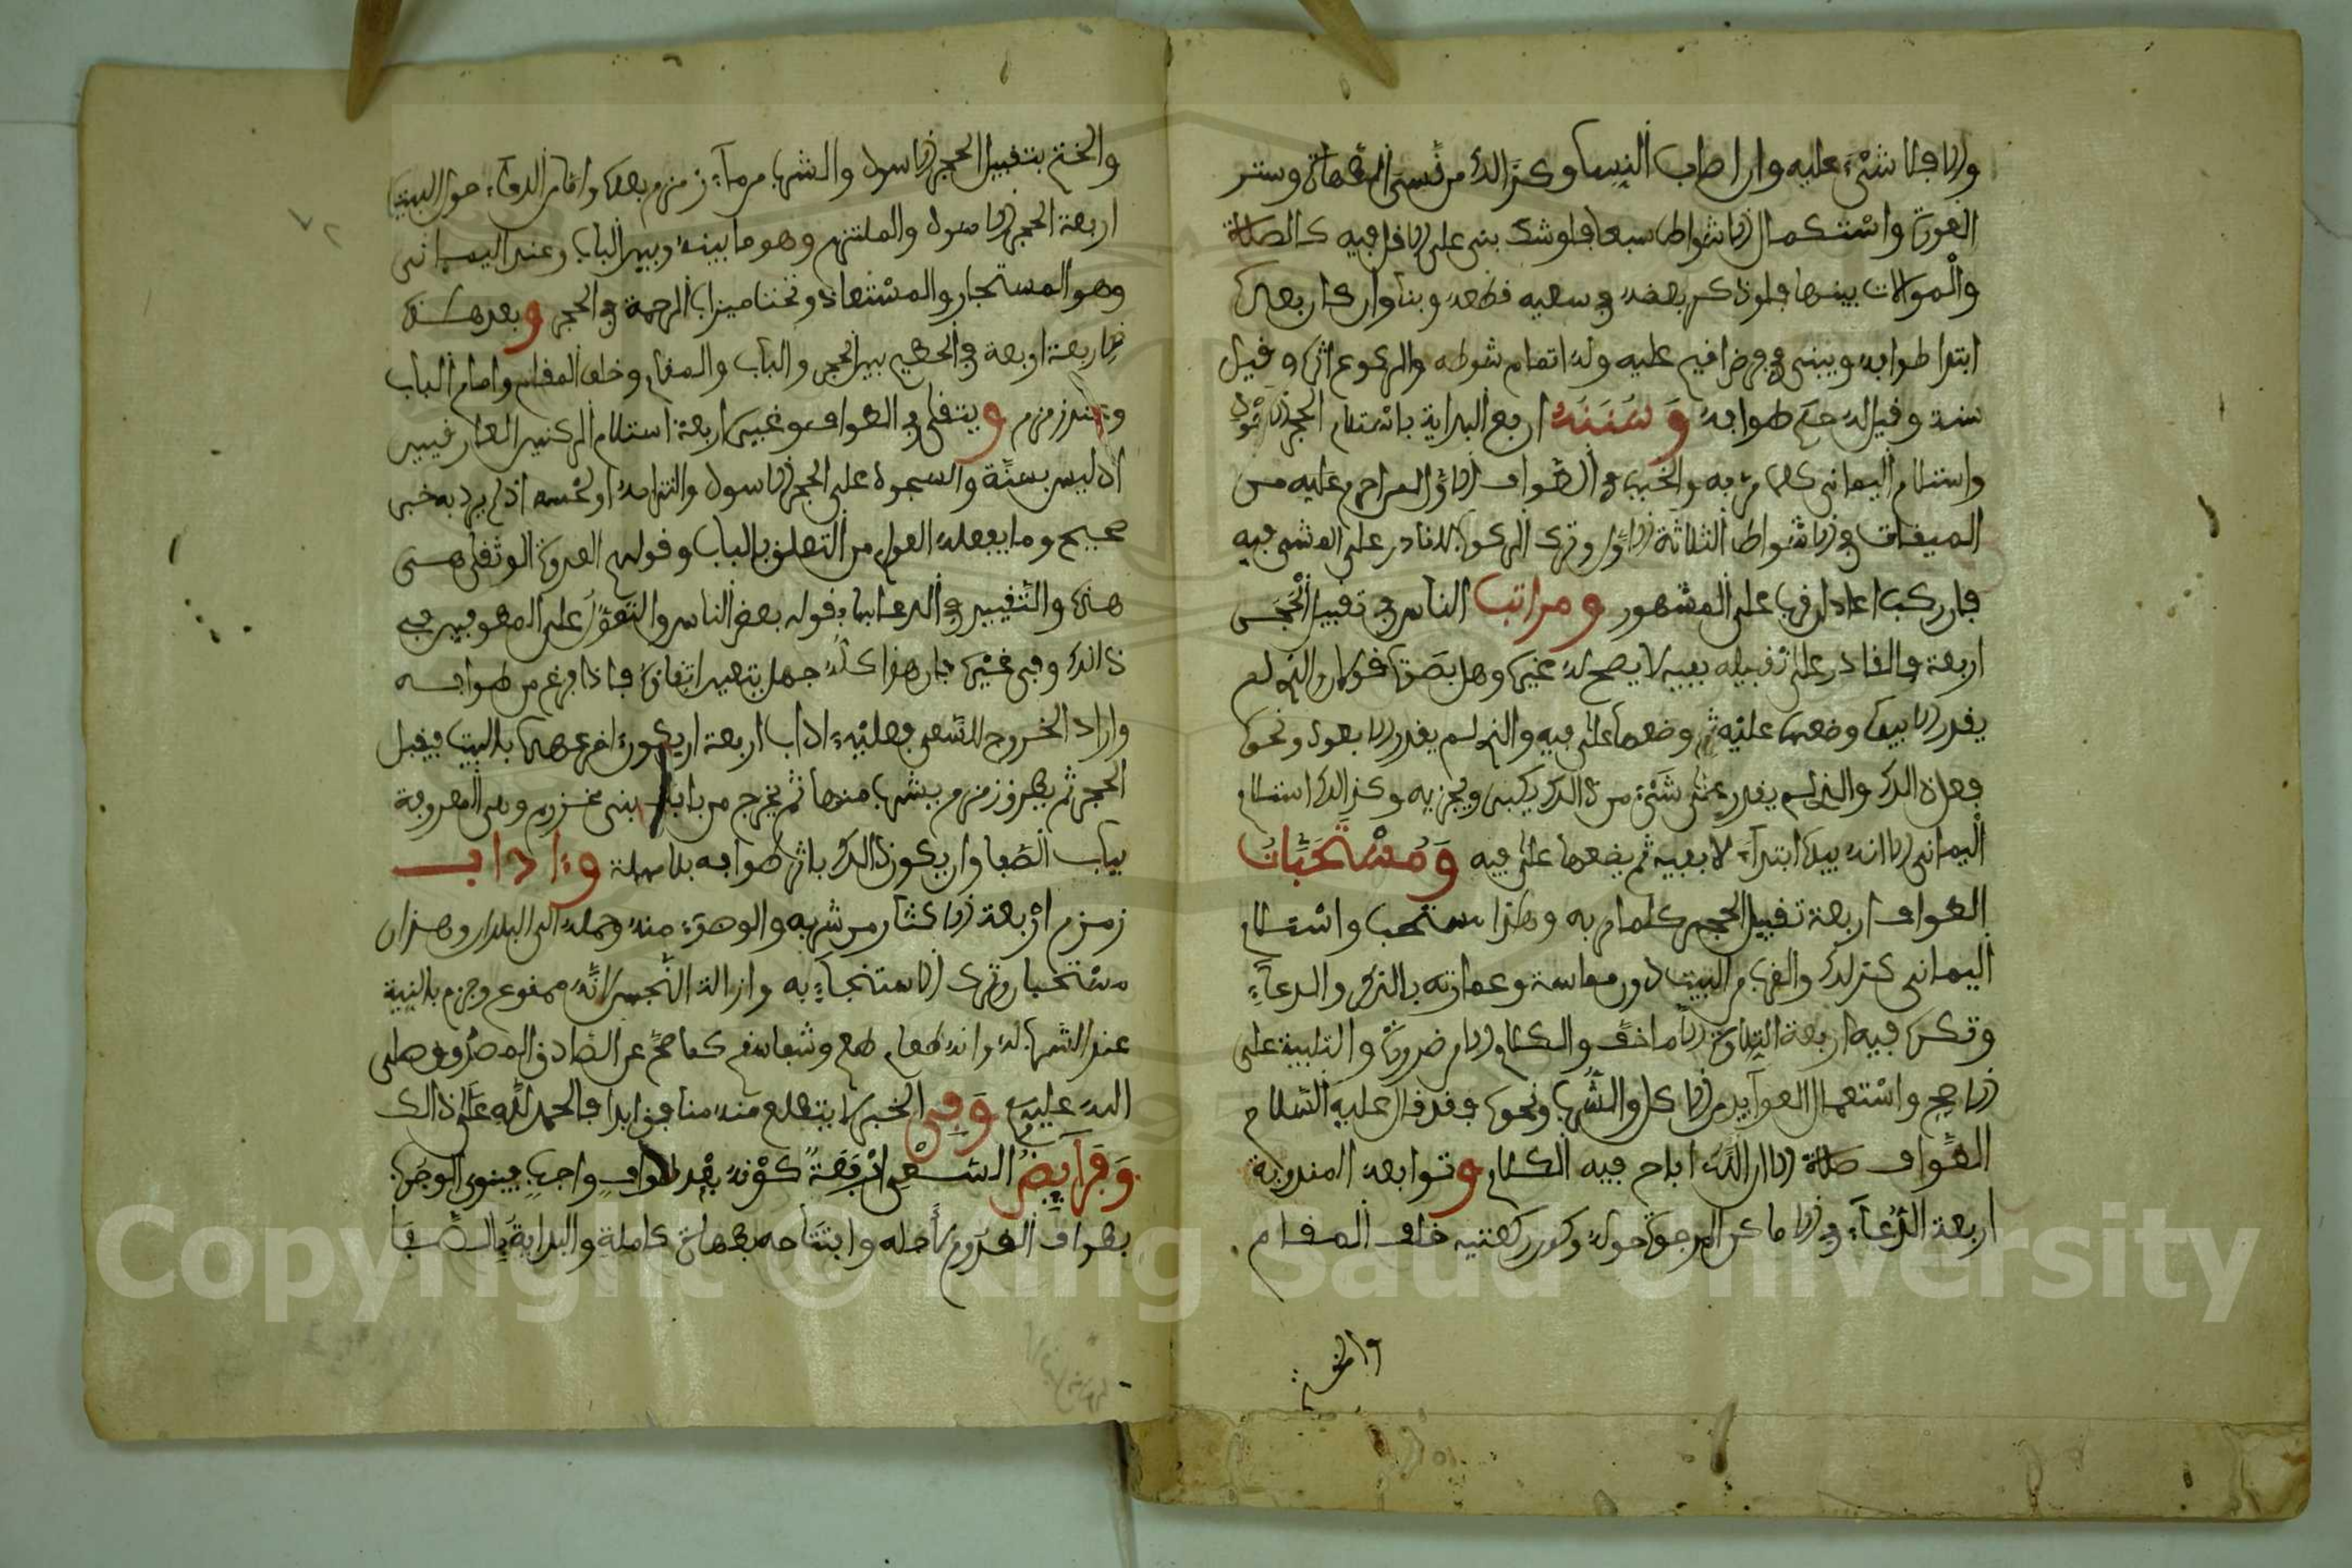 والا فلا شيء عليه وان اصاب النسا وكذالك من نسي الطهارة وستر
العورة واستكمال الاشواط سبعا فلو شك بنى على الاقل فيه كالصلاة
والموالات بينها فلو ذكر بعضه في سعيه قطعه وبنا وان كان بعد
ابتدا طوافه ويبني في فرض اقيم عليه وله اتمام شوطه والركوع اثره وقيل
سنة وقيل له حكم طوافه وَسُنَنُه اربع البداية باستلام الحجر الاسود
واستلام اليماني كلما مر به والخبب في الطواف الاول المزاحم عليه من
الميقات في الاشواط الثلاثة الاول وترك الركوب للقادر على المشي فيه
فان ركب اعاد ان قرب على المشهور ومراتب الناس في تقبيل الحجر
اربعة فالقادر على تقبيله بفيه لا يصح له غيره وهل بصوت قولان والذي لم
يقدر الا بيده وضعها عليه ثم وضعها على فيه والذي لم يقدر الا بعود ونحوه
فعل ذالك والذي لم يقدر على شيء من ذالك يكبر ويجزيه وكذالك استلام
اليماني الا انه بيده ابتدآء لا بفيه ثم يضعها على فيه وَمُسْتَحَبَّاتُ
الطواف اربعة تقبيل الحجر كلما مر به وهذا مستحب واستلام
اليماني كذلك والقرب من البيت دون مماسة وعمارته بالذكر والدعآء
وتكره فيه اربعة التلاوة الا ما خف والكلام الا من ضرورة والتلبية على
الاصح واستعمال العوآيد من الاكل والشرب ونحوه فقد قال عليه السلام
الطواف صلاة الا ان الله اباح فيه الكلام وتوابعه المندوبة
اربعة الدعآء في الاماكن المرجوة حوله وكون ركعتيه خلف المقام
والختم
والختم بتقبيل الحجر الاسود والشرب من مآء زمزم بعد واماكن الدعآء حول البيت
اربعة الحجر الاسود والملتزم وهو ما بينه وبين الباب وعند اليماني
وهو المستجار والمستعاذ وتحت ميزاب الرحمة في الحجر وبعد هذه
الاربعة اربعة في الحطيم بين الحجر والباب والمقام وخلف المقام وامام الباب
وعند زمزم ويتقى في الطواف وغيره اربعة استلام الركنين العراقيين
اذ ليس بسنة والسجود على الحجر الاسود والتزامه او لحسه اذ لم يرد به خبر
صحيح وما يفعله العوام من التعلق بالباب وقولهم العروة الوثقى هي
هذه والتغيير في الدعا بما يقوله بعض الناس والتعول على المطوفين في
ذالك وفي غيره فان هذا كله جهل يتعين اتقاؤه فاذا فرغ من طوافه
واراد الخروج للسعي فعليه اداب اربعة ان يكون اخر عهده بالبيت فيقبل
الحجر ثم يطرق زمزم بيشرب منها ثم يخرج من باب بني مخزوم وهي المعروفة
بباب الصفا وان يكون ذالك باثر طوافه بلا مهلة وءاداب
زمزم اربعة الاكثار من شربه والوضوء منه وحمله الى البلدان وهذان
مستحبان وترك الاستنجآء به وازالة النجس لانه ممنوع وجزم بالنية
عند الشرب له وانه طعام طعم وشفا سقم كما صح عن الصادق المصدوق صلى
الله عليه وفي الخبر لا يتضلع منه منافق ابدا فالحمد لله على ذالك
وَفَرَآيِضُ السعي اربعة كونه بعد طواف واجب فينوي الوجوب
بطواف القدوم لاجله وافتتاحه بطهارة كاملة والبداية بالصفا
Copyright © King Saud University